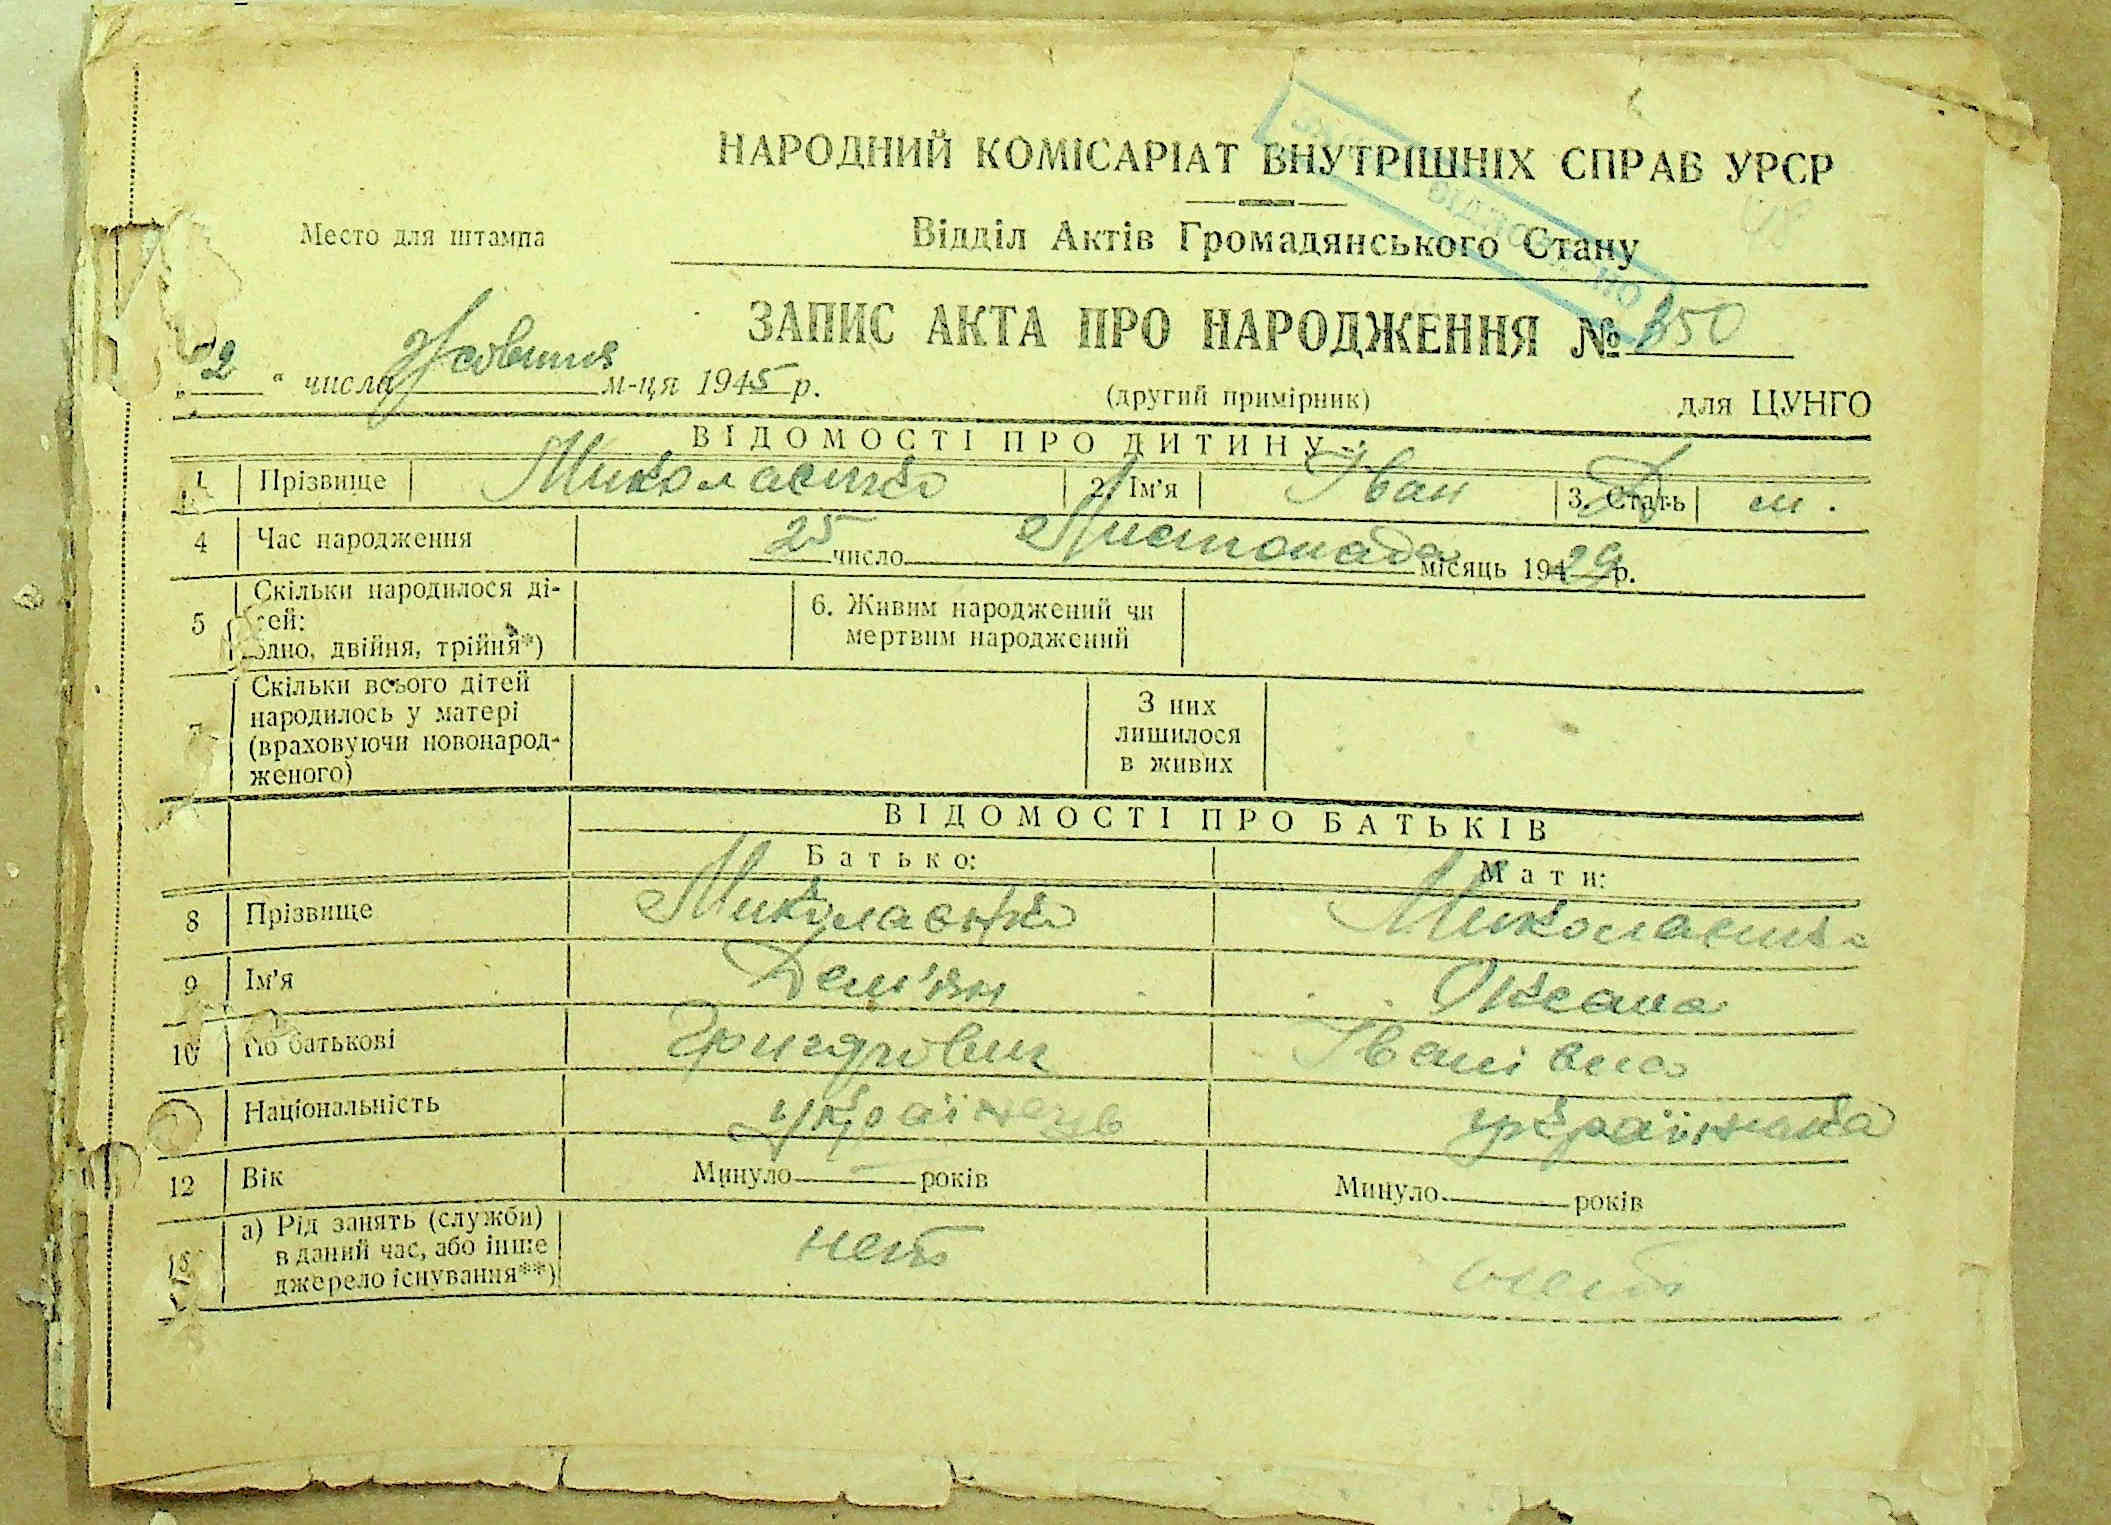 НАРОДНИЙ КОМІСАРІАТ ВНУТРІШНІХ СПРАВ УРСР
Место для штампа
Відділ Актів Громадянського Стану
ЗАПИС АКТА ПРО НАРОДЖЕННЯ № 350
"2" числа Жовтня м-ця 1945 р.
(другий примірник)
для ЦУНГО
ВІДОМОСТІ ПРО ДИТИНУ:
1 Прізвище Миколаєнко 2. Ім'я Іван Д 3. Стать м.
4 Час народження 25 число Листопада місяць 1929 р.
5 Скільки народилося ді-
тей:
одно, двійня, трійня*)
6. Живим народжений чи
мертвим народжений
7 Скільки всього дітей
народилось у матері
(враховуючи новонарод-
женого)
З них
лишилося
в живих
ВІДОМОСТІ ПРО БАТЬКІВ
Батько: Мати:
8 Прізвище Миколаєнко Миколаєнко
9 Ім'я Дем'ян Оксана
10 По батькові Іванівна
Національність українець українка
12 Вік Минуло — років Минуло років
13 а) Рід занять (служби)
в даний час, або інше
джерело існування**)
нет нет